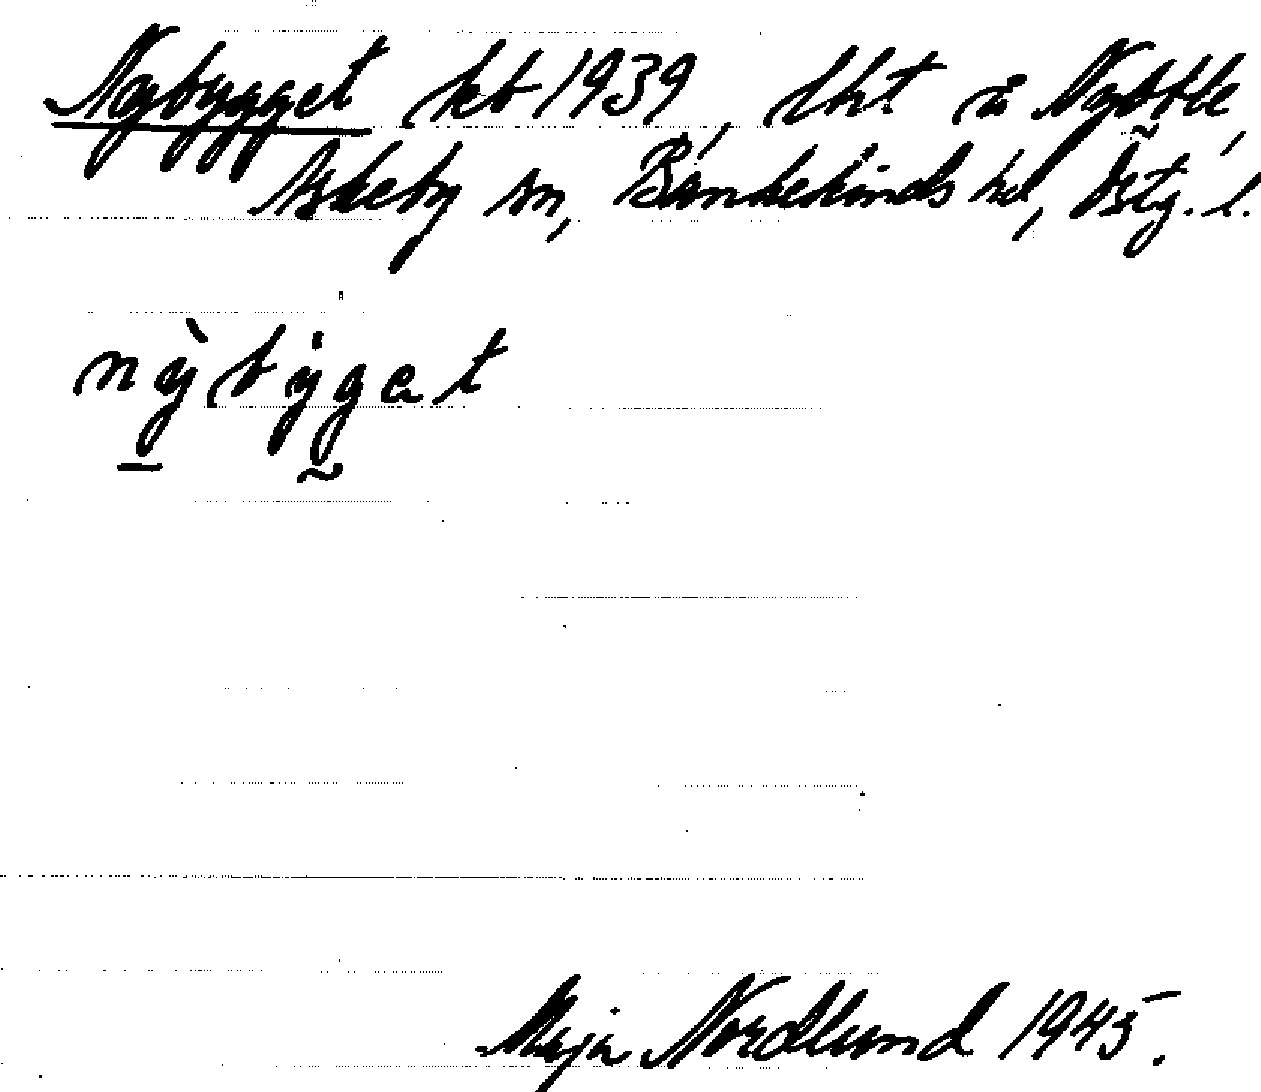 Nybygget, kb 1939, lht å Nybble,
Askeby sn, Bankekinds hd, Östg. l.
nỳbẏget
Maja Nordlund 1945.